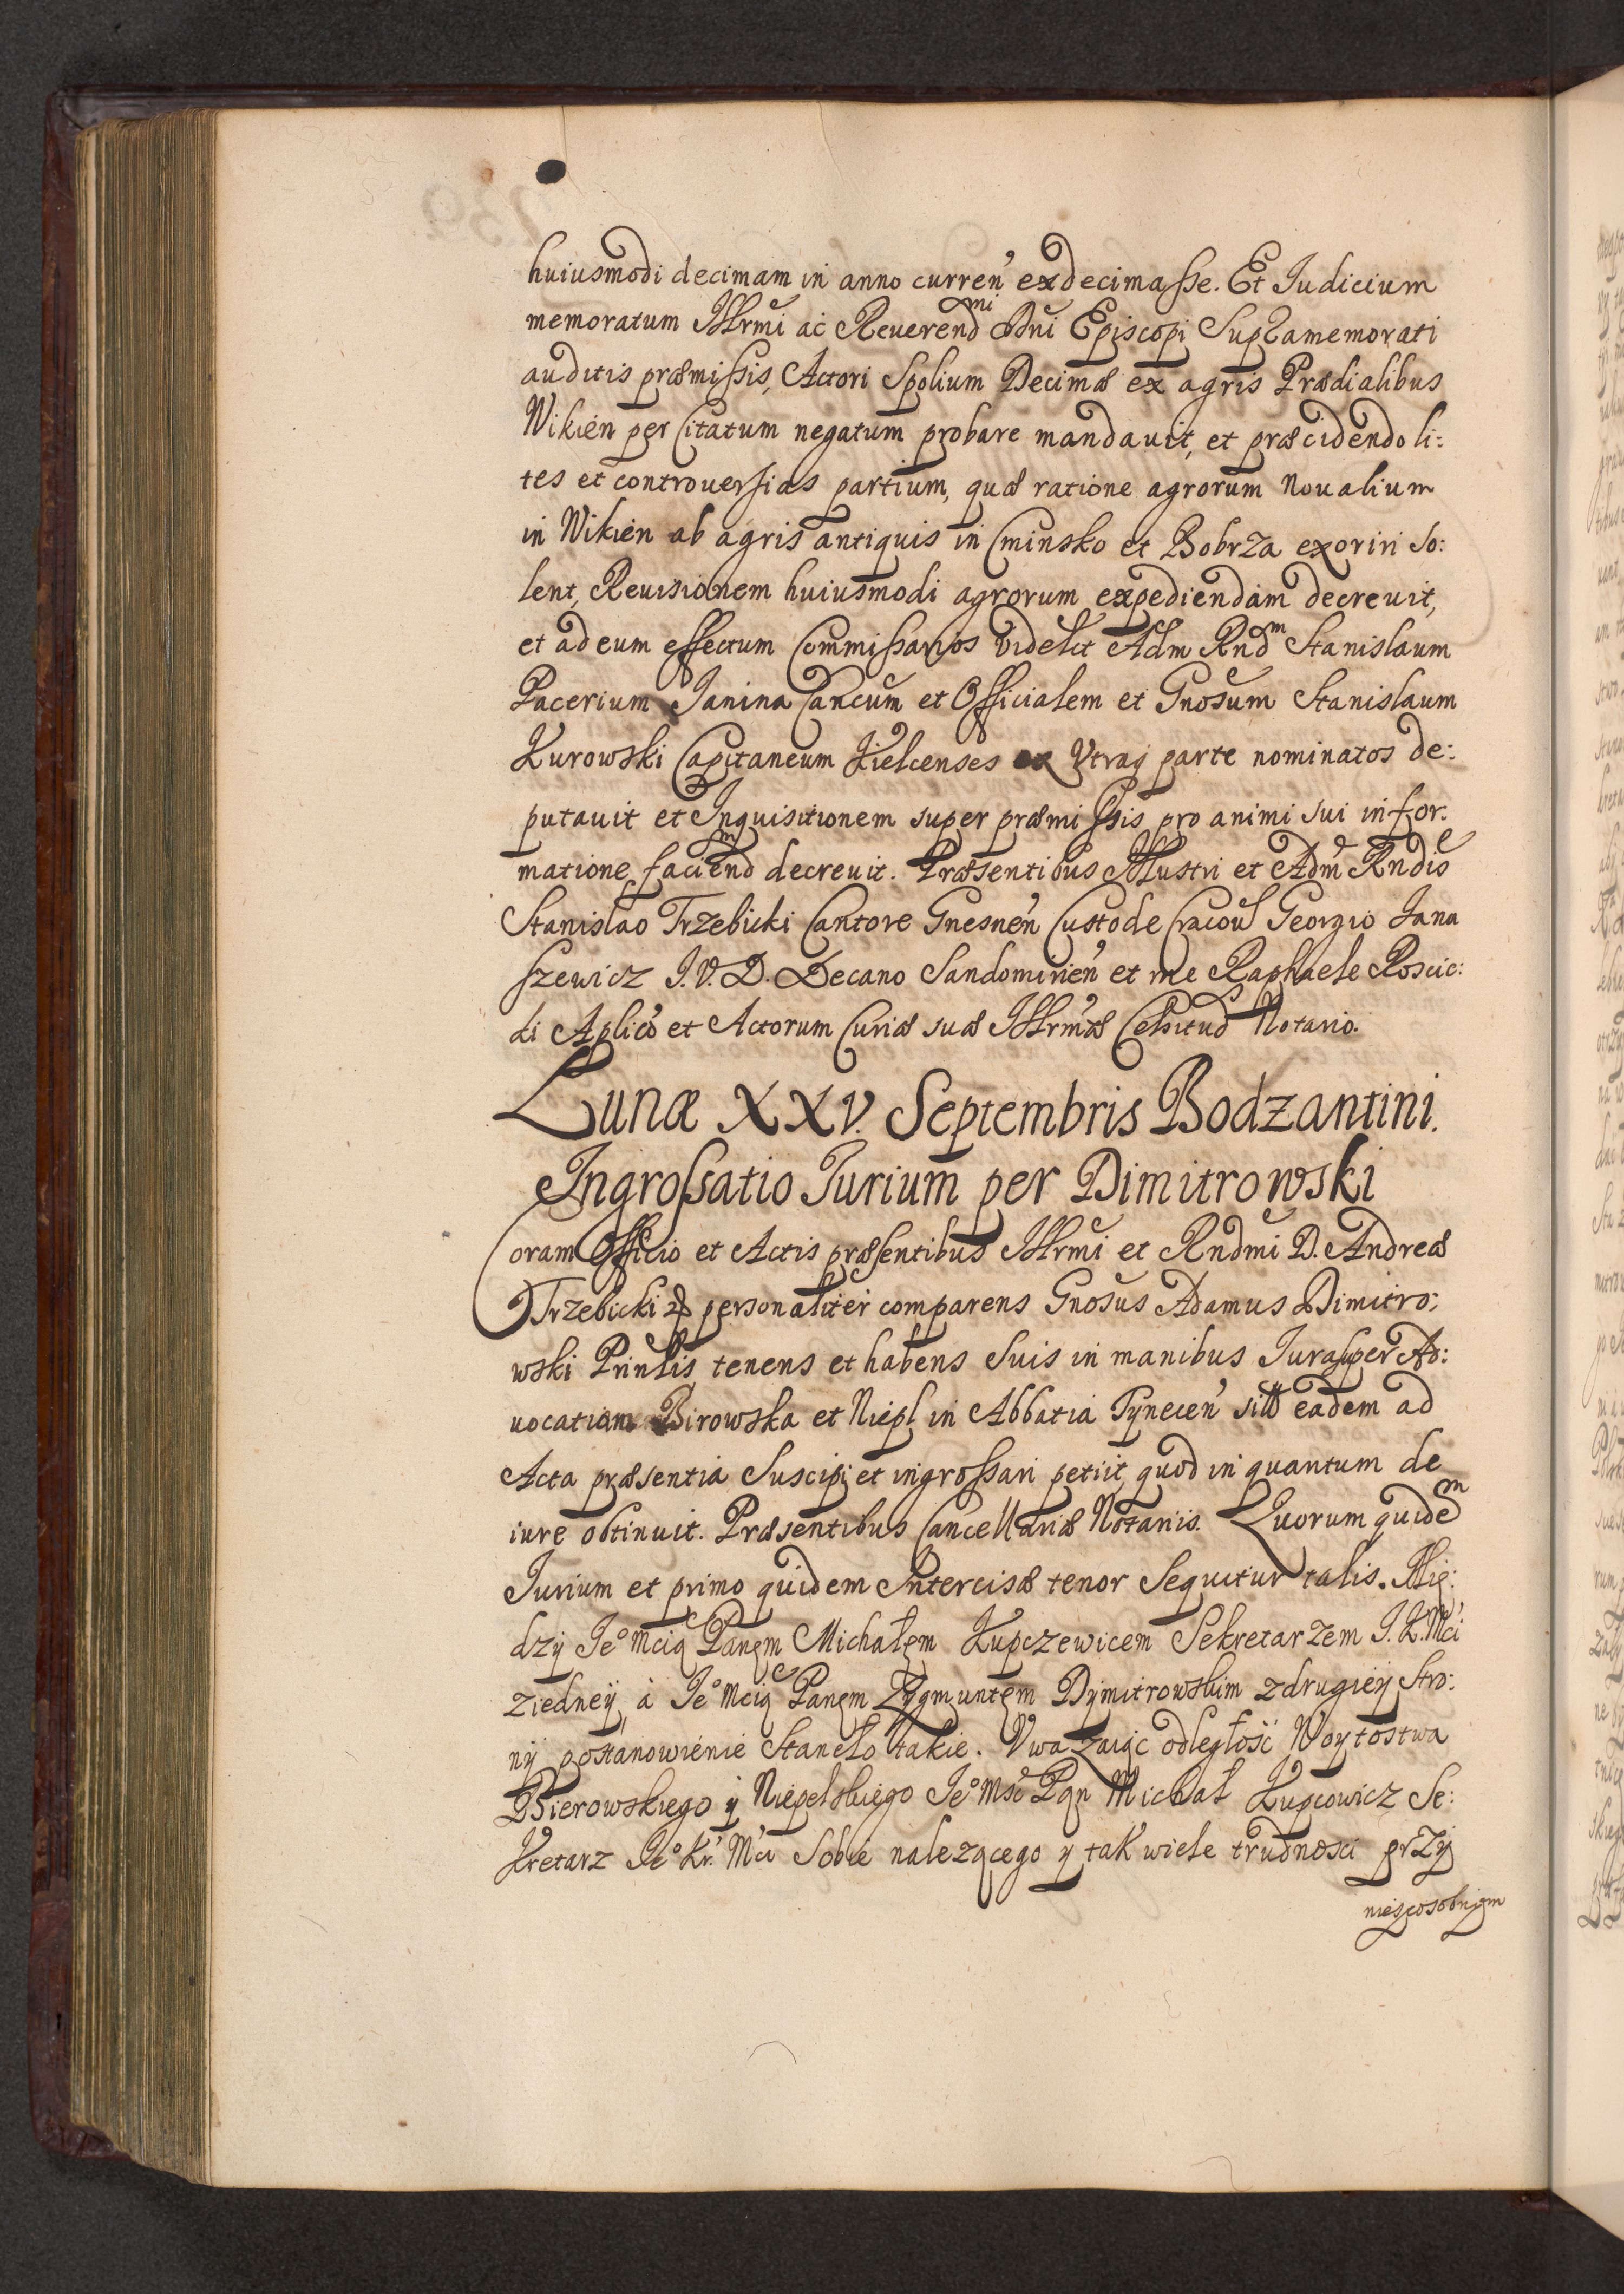 huiusmodi decimam in anno curren' exdecimasse. Et Iudicium
memoratum Illrmi ac Reuerendmi Dni Episcopi Supramemorati
auditis præmissis, Actori Spolium Decimæ ex agris Prædialibus
Wikien per Citatum negatum probare mandauit, et præcidendo li:
tes et controuersias partium, quæ ratione agrorum Noualium
in Wikien ab agris antiquis in Cminsko et Bobrza exoriri so:
lent, Reuisionem huiusmodi agrorum expediendam decreuit,
et ad eum effectum Commissarios videlct Adm Rndm Stanislaum
Pacerium Janina Cancum et Officialem et Gnosum Stanislaum
Kurowski Capitaneum Kielcenses ex Vtraq parte nominatos de:
putauit et Inquisitionem super præmissis pro animi sui infor:
matione faciendm decreuit. Præsentibus Illustri et Adm Rndis
Stanislao Trzebicki Cantore Gnesnen' Custode Cracou Georgio Jana
szewicz I. V. D. Decano Sandomirien' et me Raphaele Roscic:
di Aplico et Actorum Curiæ suæ Illrmæ Celsitud Notario.
Lunæ XXV. Septembris Bodzantini.
Ingrossatio Iurium per Dimitrowski
Coram Officio et Actis præsentibus Illrmi et Rndmi D. Andreæ
Trzebicki personaliter comparens Gnosus Adamus Dimitro:
wski Prinlis tenens et habens suis in manibus Iura super Ad:
uocatiam Birowska et Niepl in Abbatia Tynecen' eadem ad
Acta præsentia Suscipi et ingrossari petiit, quod in quantum de
iure obtinuit. Præsentibus Cancellariæ Notariis. Quorum quidem
Iurium et primo quidem Intercisæ tenor Sequitur talis. Mię:
dzÿ Jeo Mcią Panem Michałem Kupczewicem Sekretarzem J. K. Mci
ziedneÿ, à Jeo Mcią Panem Zygmuntem Dÿmitrowskim zdrugieÿ Stro:
nÿ postanowienie Stanęło takie. Vwazaiąc odległość Woytostwa
Bierowskiego ÿ Niepelskiego Jeo Msc Pan Michał Kupcowicz Se:
kretarz Jeo Kr. Mci Sobie nalezącego y tak wiele trudnosci przÿ
niesposobnym